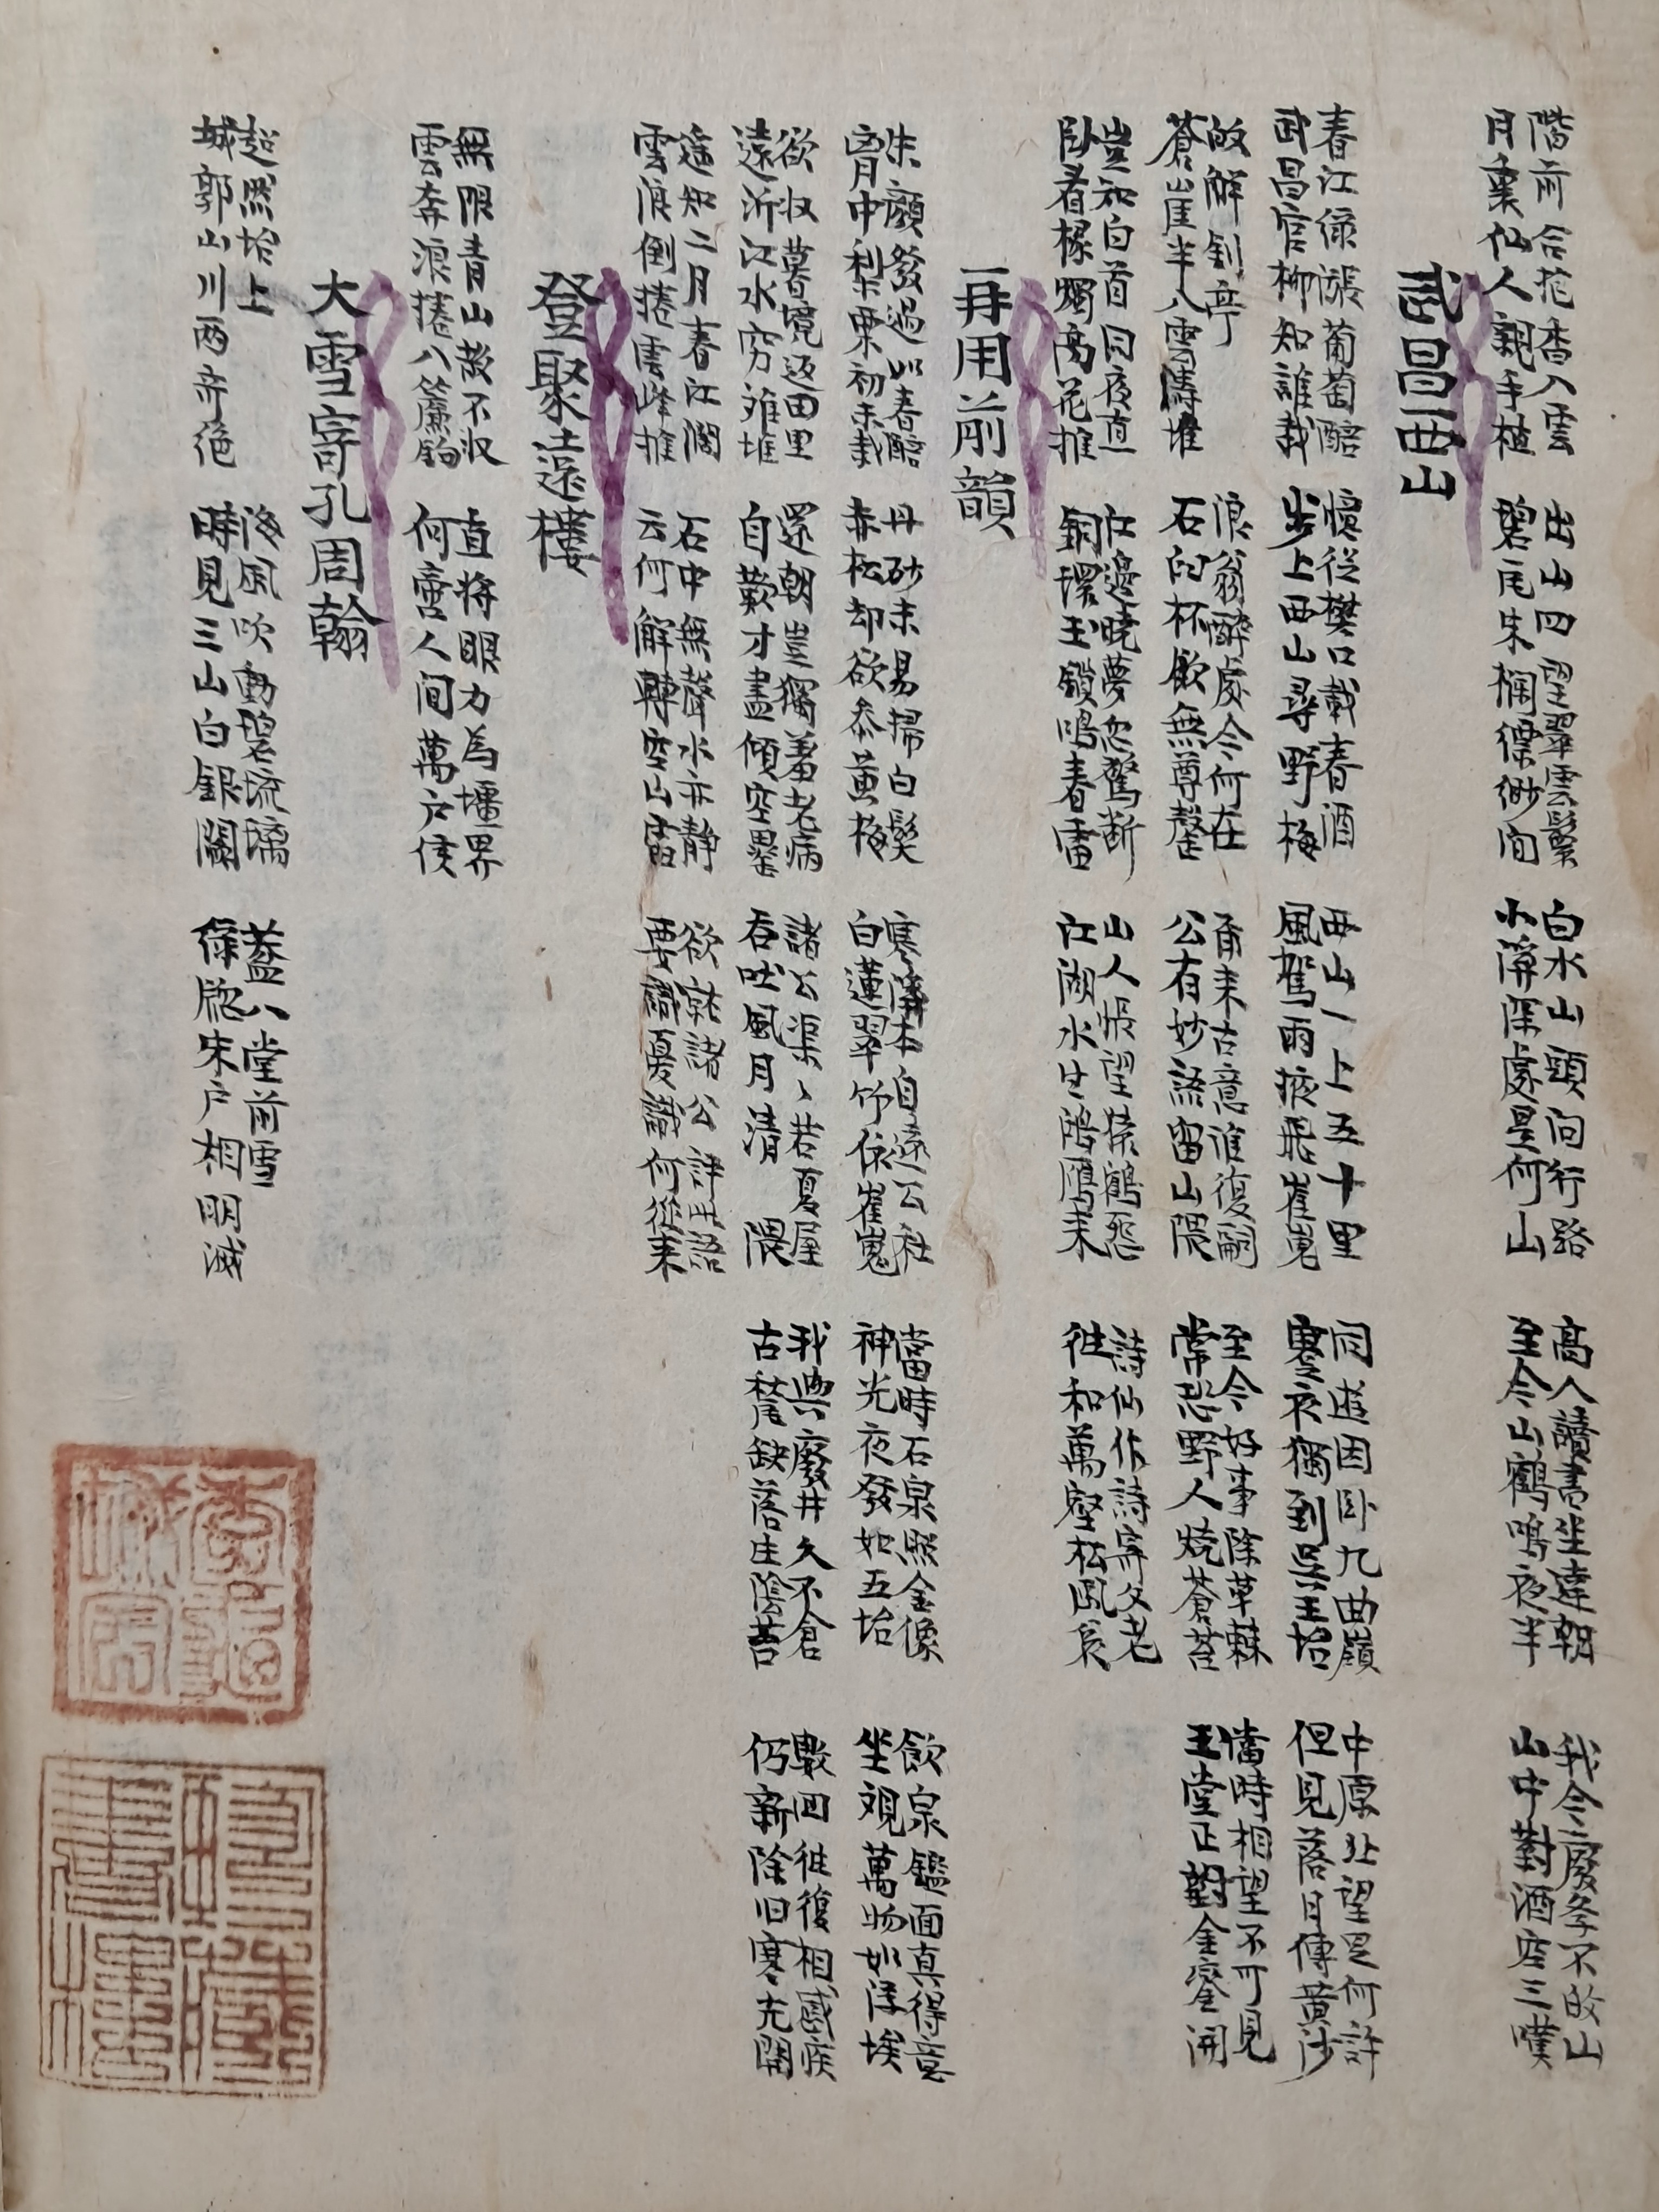 階前合花香入雲
月裏仙人親手植
出山四望翠雲鬟
碧瓦朱欄縹緲间
白水山頭问行路
小溪深處是何山
高人讀書坐達朝
至今山鶴鳴夜半
我今廢孝不敀山
山中對酒空三嘆
武昌西山
春江渌漲葡萄醅
武昌官柳知誰栽
憶從樊口載春酒
步上西山尋野梅
西山一上五十里
風駕兩掖飛崔嵬
同遊困卧九曲嶺
蹇衣獨到吳王坮
中原北望是何許
但見落日傳黃沙
敀解釗亭
蒼崖半入雲濤堆
浪翁醉處今何在
石臼杯飲無尊罄
甭来古意誰復嗣
公有妙語留山隈
至今好事除草棘
常恐野人燒蒼苔
當時相望不可見
玉堂正對金鑾開
豈知白首囙夜直
卧看椽燭高花摧
江邊曉夢忽驚斷
銅環玉鎖鳴春雷
山人悵望猿鶴怨
江湖水生鴻鴈来
詩仙作詩寄父老
徃和萬壑松風哀
再用前韻
朱顔發過如春醅
胷中梨栗初未栽
丹砂未易掃白髮
赤松却欲叅黃梅
寒溪本自遠公社
白蓮翠竹依崔嵬
當時石泉照金像
神光夜發如五坮
飲泉鑑面真得意
坐視萬物如浮埃
欲收暮境返田里
遠沂江水窮难堆
還朝豈獨羞老病
自歎才盡傾空罍
諸公渠〻若夏屋
吞吐風月清 隈
我與廢井久不食
古甃缺落生陰苔
數回徃復相感疾
仍新除旧寒光開
遥知二月春江濶
雲浪倒捲雲峰摧
石中無聲水亦静
云何解轉空山雷
欲就諸公評此語
要識憂謝何從来
登聚遠樓
無限青山散不收
雲奔浪捲入簾鉤
直將眼力為壃界
何啻人间萬户侯
大雪寄孔周翰
超然坮上
城郭山川两奇絶
海風吹動碧琉璃
時見三山白銀闕
蓋公堂前雪
綠牕朱户相明滅